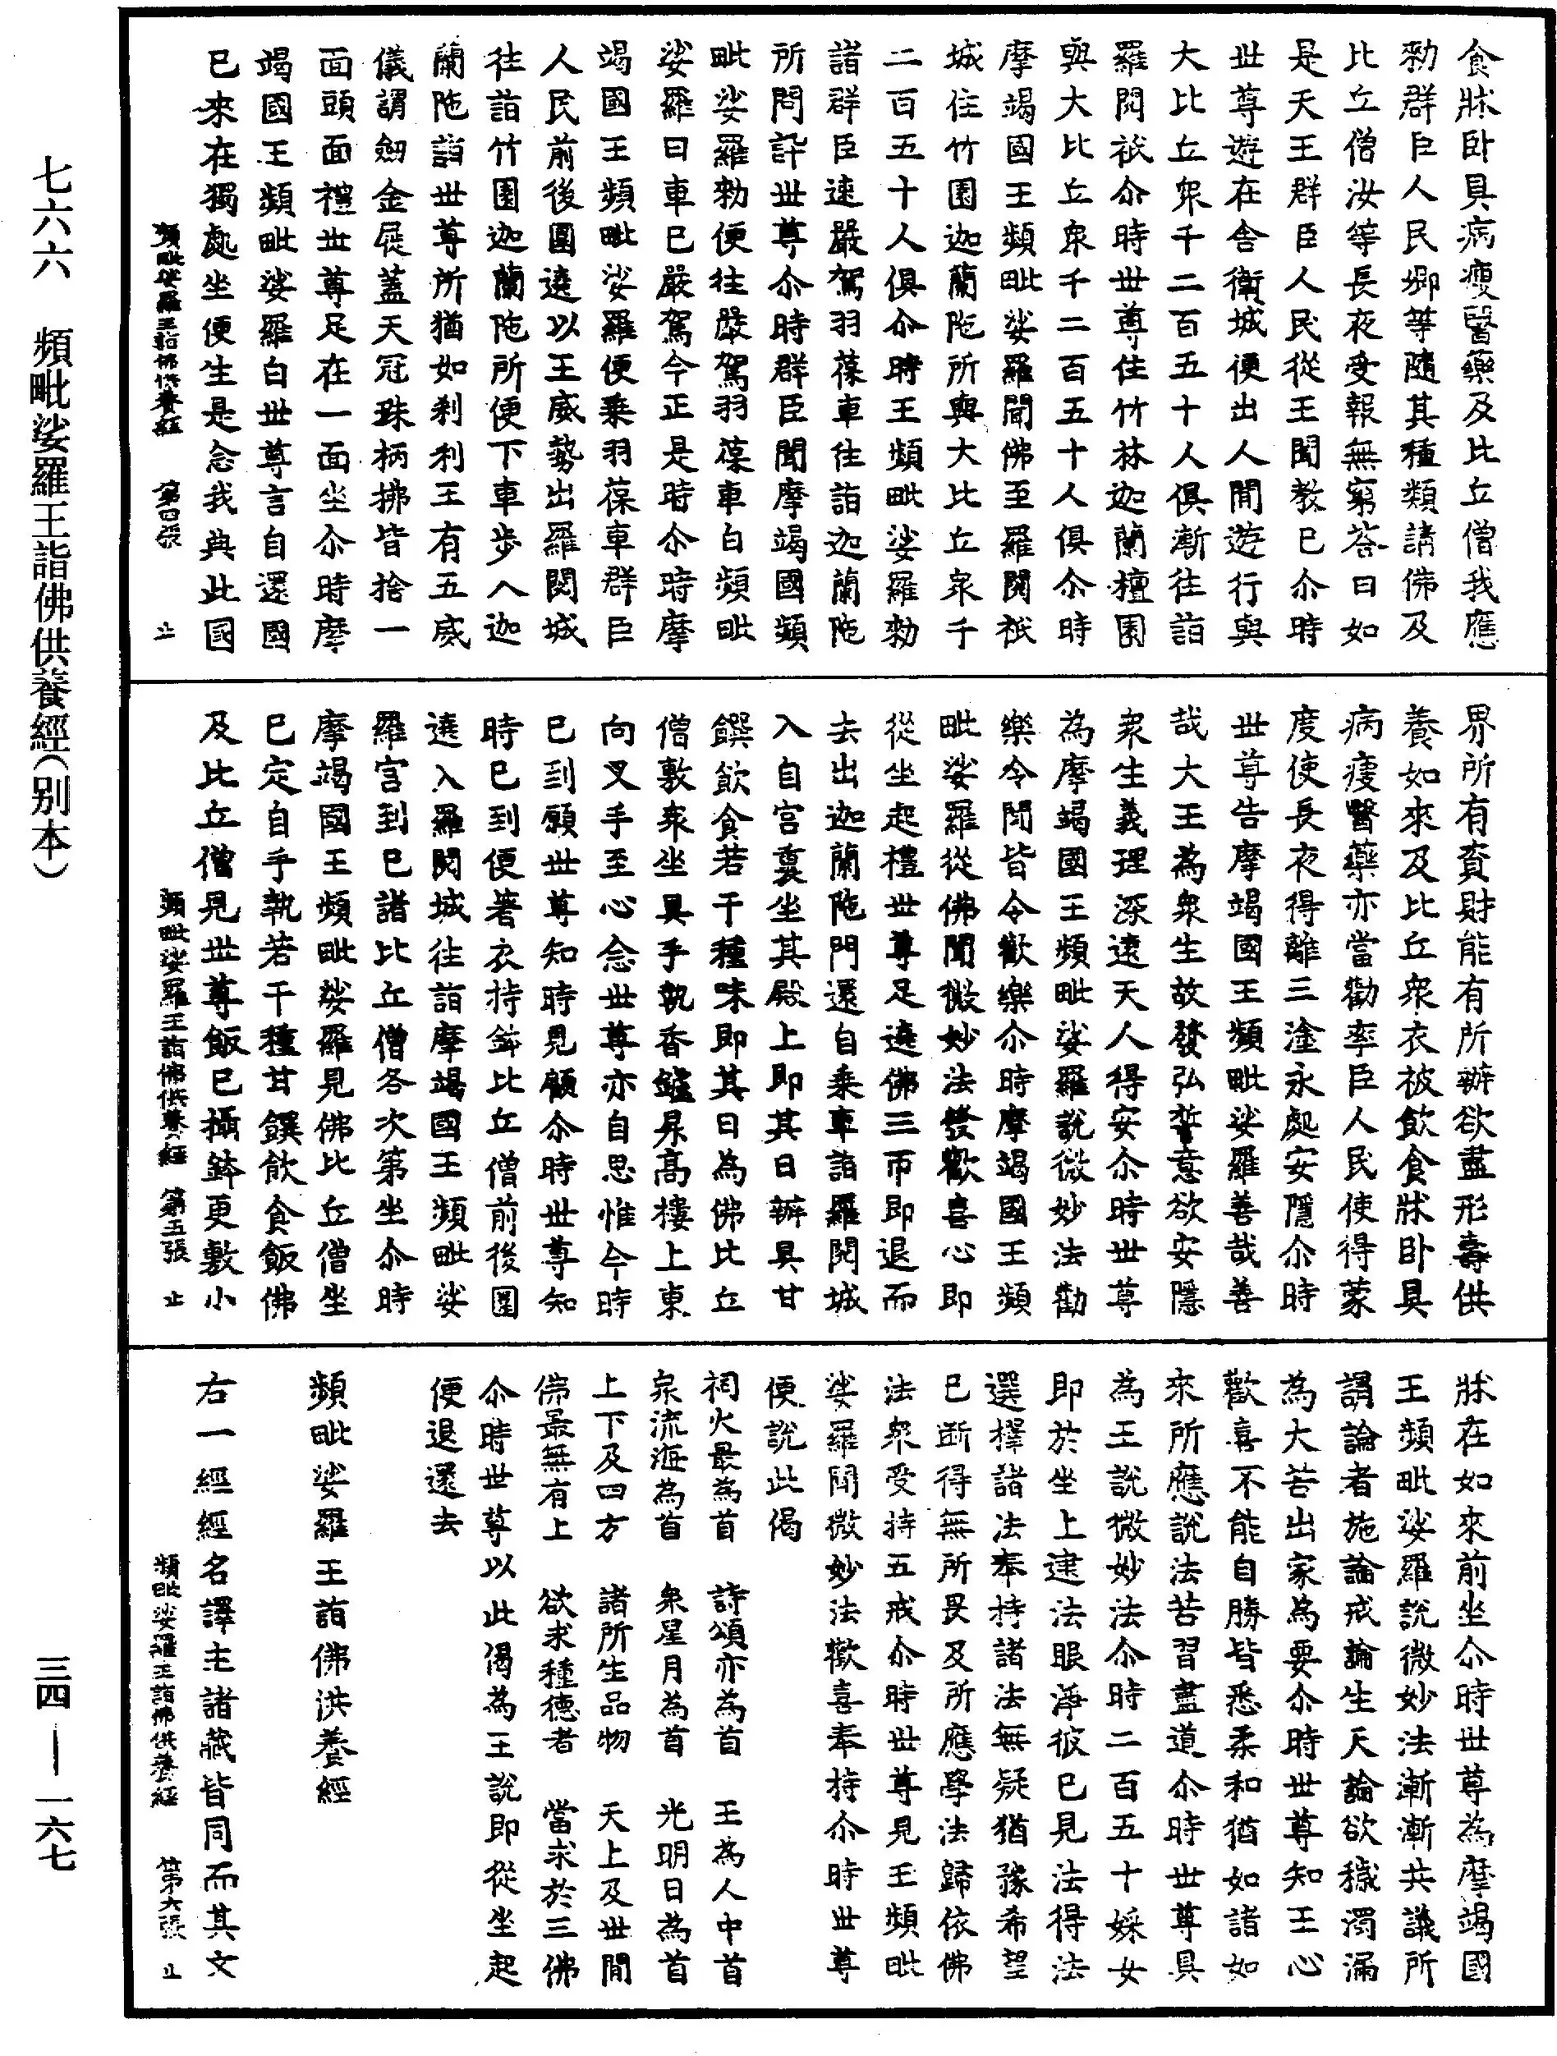 食牀臥具病瘦醫藥及比丘僧我應
勑群臣人民卿等隨其種類請佛及
比丘僧汝等長夜受報無窮荅曰如
是天王群臣人民從王聞教已尒時
世尊遊在舍衛城便出人間遊行與
大比丘眾千二百五十人俱漸往詣
羅閱祇尒時世尊住竹林迦蘭檀園
與大比丘眾千二百五十人俱尒時
摩竭國王頻毗娑羅聞佛至羅閱祇
城住竹園迦蘭陁所與大比丘眾千
二百五十人俱尒時王頻毗娑羅勑
諸群臣速嚴駕羽葆車往詣迦蘭陁
所問訊世尊尒時群臣聞摩竭國頻
毗娑羅勑便往嚴駕羽葆車白頻毗
娑羅曰車已嚴駕今正是時尒時摩
竭國王頻毗娑羅便乘羽葆車群臣
人民前後圍遶以王威勢出羅閱城
往詣竹園迦蘭陁所便下車步入迦
蘭陁詣世尊所猶如剎利王有五威
儀謂劒金屣蓋天冠珠柄拂皆捨一
面頭面禮世尊足在一面坐尒時摩
竭國王頻毗娑羅白世尊言自還國
已來在獨處坐便生是念我典此國
頻毗娑羅王詣佛供養經 第四張 止
界所有資財能有所辦欲盡形壽供
養如來及比丘眾衣被飲食牀臥具
病瘦醫藥亦當勸率臣人民使得蒙
度使長夜得離三塗永處安隱尒時
世尊告摩竭國王頻毗娑羅善哉善
哉大王為眾生故發弘誓意欲安隱
眾生義理深遠天人得安尒時世尊
為摩竭國王頻毗娑羅說微妙法勸
樂令聞皆令歡樂尒時摩竭國王頻
毗娑羅從佛聞微妙法發歡喜心即
從坐起禮世尊足遶佛三帀即退而
去出迦蘭陁門還自乘車詣羅閱城
入自宮裏坐其殿上即其日辦具甘
饌飲食若干種味即其日為佛比丘
僧敷眾坐具手執香鑪昇高樓上東
向叉手至心念世尊亦自思惟今時
已到願世尊知時見顧尒時世尊知
時已到便著衣持鉢比丘僧前後圍
遶入羅閱城往詣摩竭國王頻毗娑
羅宮到已諸比丘僧各次第坐尒時
摩竭國王頻毗娑羅見佛比丘僧坐
已定自手執若干種甘饌飲食飯佛
及比丘僧見世尊飯已攝鉢更敷小
頻毗娑羅王詣佛供養經 第五張 止
牀在如來前坐尒時世尊為摩竭國
王頻毗娑羅說微妙法漸漸共議所
謂論者施論戒論生天論欲穢濁漏
為大苦出家為要尒時世尊知王心
歡喜不能自勝皆悉柔和猶如諸如
來所應說法苦習盡道尒時世尊具
為王說微妙法尒時二百五十婇女
即於坐上逮法眼淨彼已見法得法
選擇諸法奉持諸法無疑猶豫希望
已斷得無所畏及所應學法歸依佛
法眾受持五戒尒時世尊見王頻毗
娑羅聞微妙法歡喜奉持尒時世尊
便說此偈
祠火最為首 詩頌亦為首 王為人中首
眾流海為首 眾星月為首 光明日為首
上下及四方 諸所生品物 天上及世間
佛最無有上 欲求種德者 當求於三佛
尒時世尊以此偈為王說即從坐起
便退還去
頻毗娑羅王詣佛洪養經
右一經經名譯主諸藏皆同而其文
頻毗娑羅王詣佛供養經 第六張 止
七六六 頻毗娑羅王詣佛供養經(别本) 三四—一六七